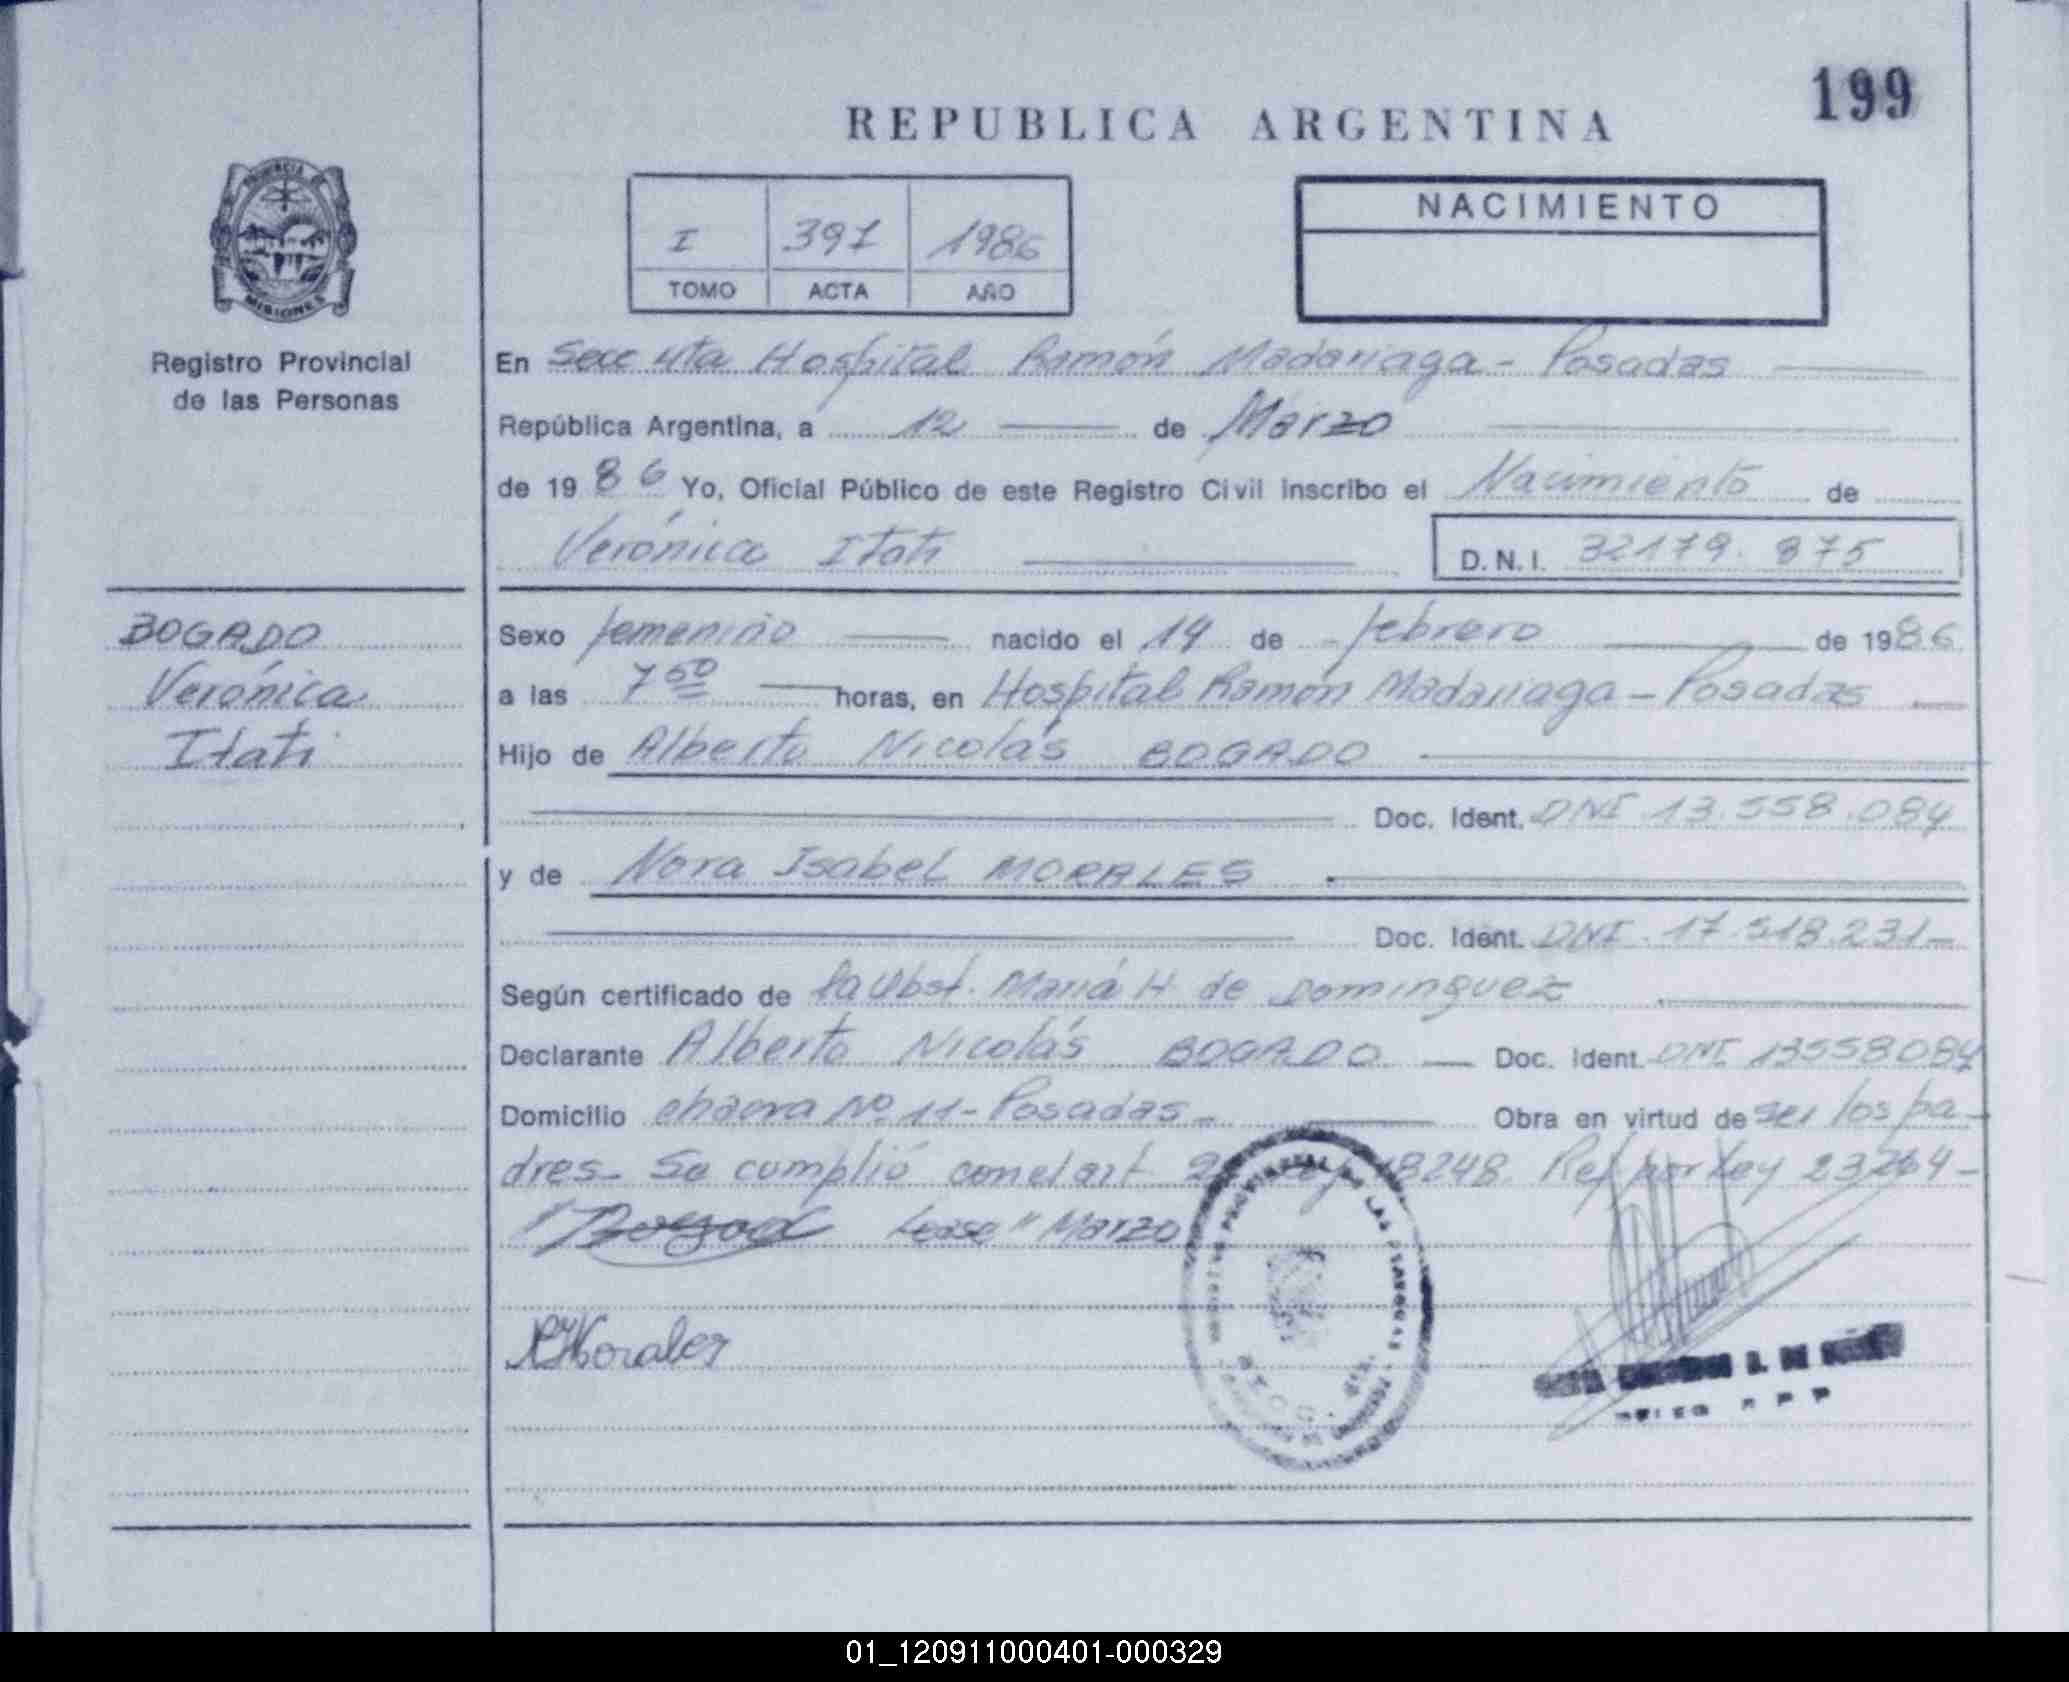 199
REPUBLICA ARGENTINA
PROVINCIA DE
MISIONES
Registro Provincial
de las Personas
I 391 1986
TOMO ACTA AÑO
NACIMIENTO
En Secc 4ta Hospital Ramón Madariaga - Posadas
República Argentina, a 12 de Marzo
de 19 86 Yo, Oficial Público de este Registro Civil inscribo el Nacimiento de
Verónica Itatí
D. N. I. 32179.875
BOGADO
Verónica
Itatí
Sexo femenino nacido el 14 de febrero de 1986
a las 7 50 horas, en Hospital Ramón Madariaga - Posadas
Hijo de Alberto Nicolás BOGADO
Doc. Ident. DNI 13.558.084
y de Nora Isabel MORALES
Doc. Ident. DNI 17.518.231-
Según certificado de la Obst. María H de Dominguez
Declarante Alberto Nicolás BOGADO Doc. Ident. DNI 13558084
Domicilio chacra Nº 11- Posadas- Obra en virtud de ser los pa-
dres- Se cumplió con el art 18248. Ref por Ley 23264-
Lease "Marzo
NMorales
01_120911000401-000329